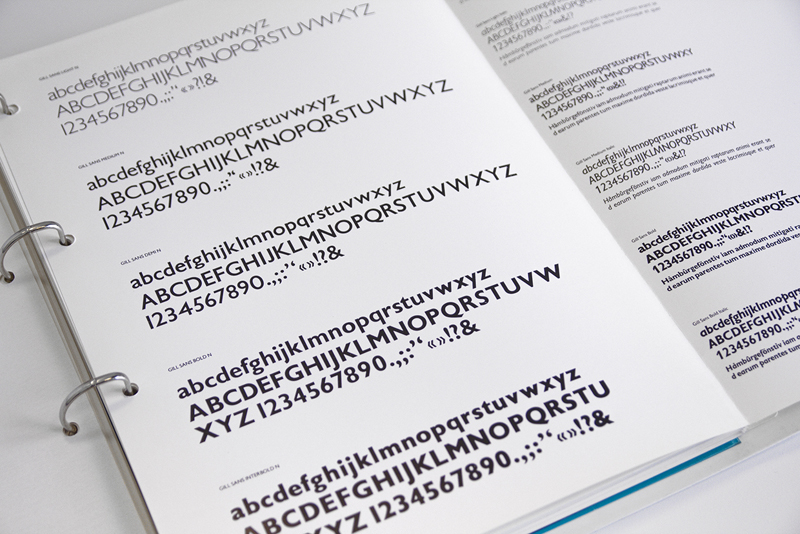 GILL SANS LIGHT N
abcdefghijklmnopqrstuvwxyz
ABCDEFGHIJKLMNOPQRSTUVWXYZ
1234567890.,;:'‘ «»!?&
GILL SANS MEDIUM N
abcdefghijklmnopqrstuvwxyz
ABCDEFGHIJKLMNOPQRSTUVWXYZ
1234567890.,;:'‘ «»!?&
GILL SANS DEMI N
abcdefghijklmnopqrstuvwxyz
ABCDEFGHIJKLMNOPQRSTUVWXYZ
1234567890.,;:'‘ «»!?&
GILL SANS BOLD N
abcdefghijklmnopqrstuvwxyz
ABCDEFGHIJKLMNOPQRSTUVW
XYZ 1234567890.,;:'‘ «»!?&
GILL SANS INTERBOLD N
abcdefghijklmnopqrstuvwxyz
ABCDEFGHIJKLMNOPQRSTU
XYZ 1234567890.,;:'‘ «»!?&
abcdefghijklmnopqrstuvwxyz
ABCDEFGHIJKLMNOPQRSTUVWXYZ
1234567890
Gill Sans Medium
abcdefghijklmnopqrstuvwxyz
ABCDEFGHIJKLMNOPQRSTUVWXYZ
1234567890.,;:'‘ «»&!?
Hamburgefönstiv iam admodum mitigati raptarum animi erant se
d earum parentes tum maxime dordida veste lacrimisque et quer
Gill Sans Medium Italic
abcdefghijklmnopqrstuvwxyz
ABCDEFGHIJKLMNOPQRSTUVWXYZ
1234567890.,;:'‘ «»&!?
Hamburgefönstiv iam admodum mitigati raptarum animi erant se
d earum parentes tum maxime dordida veste lacrimisque et quer
Gill Sans Bold
abcdefghijklmnopqrstuvwxyz
ABCDEFGHIJKLMNOPQRSTUVWXYZ
1234567890.,;:'‘ «»&!?
Hamburgefönstiv iam admodum mitigati
d earum parentes tum maxime dordida
Gill Sans Bold Italic
abcdefghijklmnopqrstuv
ABCDEFGHIJKLMNOPQRS
1234567890.,;:'‘ «»&!?
Hamburgefönstiv iam admodum
d earum parentes tum maxim